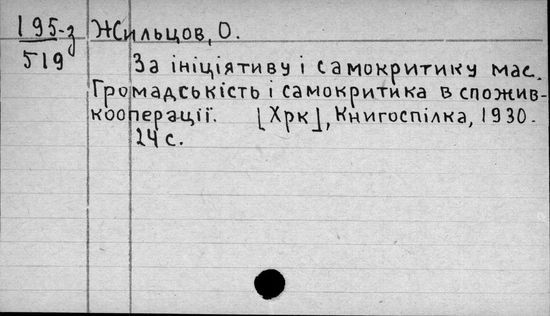 195-з Жильцов, О.
519
За ініціятиву і самокритику мас.
Громадськість і самокритика в спожив-
кооперації. [Хрк], Книгоспілка, 1930.
24 с.